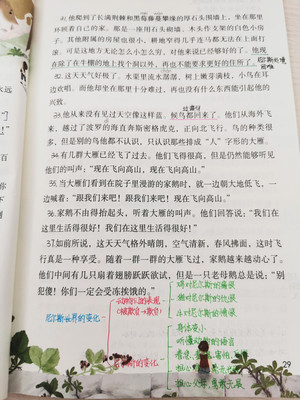 31.他爬到了长满荆棘和黑莓藤蔓攀缘的厚石头围墙上,坐在那里
休顾着自己的家。那是一座用石头砌墙、木头作支架的白色小房
子。其他附属的房屋也很小,耕地窄得几乎连马都无法在上面打
滚。可是这地方无论怎么小怎么穷,对他来说已经够好的了。他现
在除了在牛棚的地上找个洞以外,再也不能要求更好的住所了。
尼尔斯处境
困难
32.这天天气好极了。水渠里流水潺潺,树上嫩芽满枝,小鸟在耳
边欢唱。而他却坐在那里十分难过,再也没有什么东西能引起他的
兴致。
33.他从来没有见过天空像这样蓝。候鸟都回来了。他们从海外飞
来,越过了波罗的海直奔斯密格虎克,正向北飞行。鸟的种类很
多,但是别的鸟他都不认识,只认识那些排成“人”字形的大雁。
34.有几群大雁已经飞了过去。他们飞得很高,但是仍然能够听见
他们的叫声:“现在飞向高山,现在飞向高山。”
35.当大雁们看到在院子里漫游的家鹅时,就一边朝大地低飞,一
边喊着:“跟我们来吧!跟我们来吧!现在飞向高山。”
36.家鹅不由得抬起头,听着大雁的叫声。他们回答说:“我们在
这里生活得很好!我们在这里生活得很好!”
37.如前所说,这天天气格外晴朗,空气清新,春风拂面,这时飞
行真是一种享受。随着一群一群的大雁飞过,家鹅越来越动心了。
他们中间有几只扇着翅膀跃跃欲试,但是一只老母鹅总是说:“别
犯傻!你们一定会受冻挨饿的。”
尼尔斯世界的变化
动物们的表现
(被欺负→欺负)
鸡对尼尔斯的痛恨
猫对尼尔斯的仇恨
牛对尼尔斯的痛恨
尼尔斯的变化
身体变小
听懂动物的语言
29